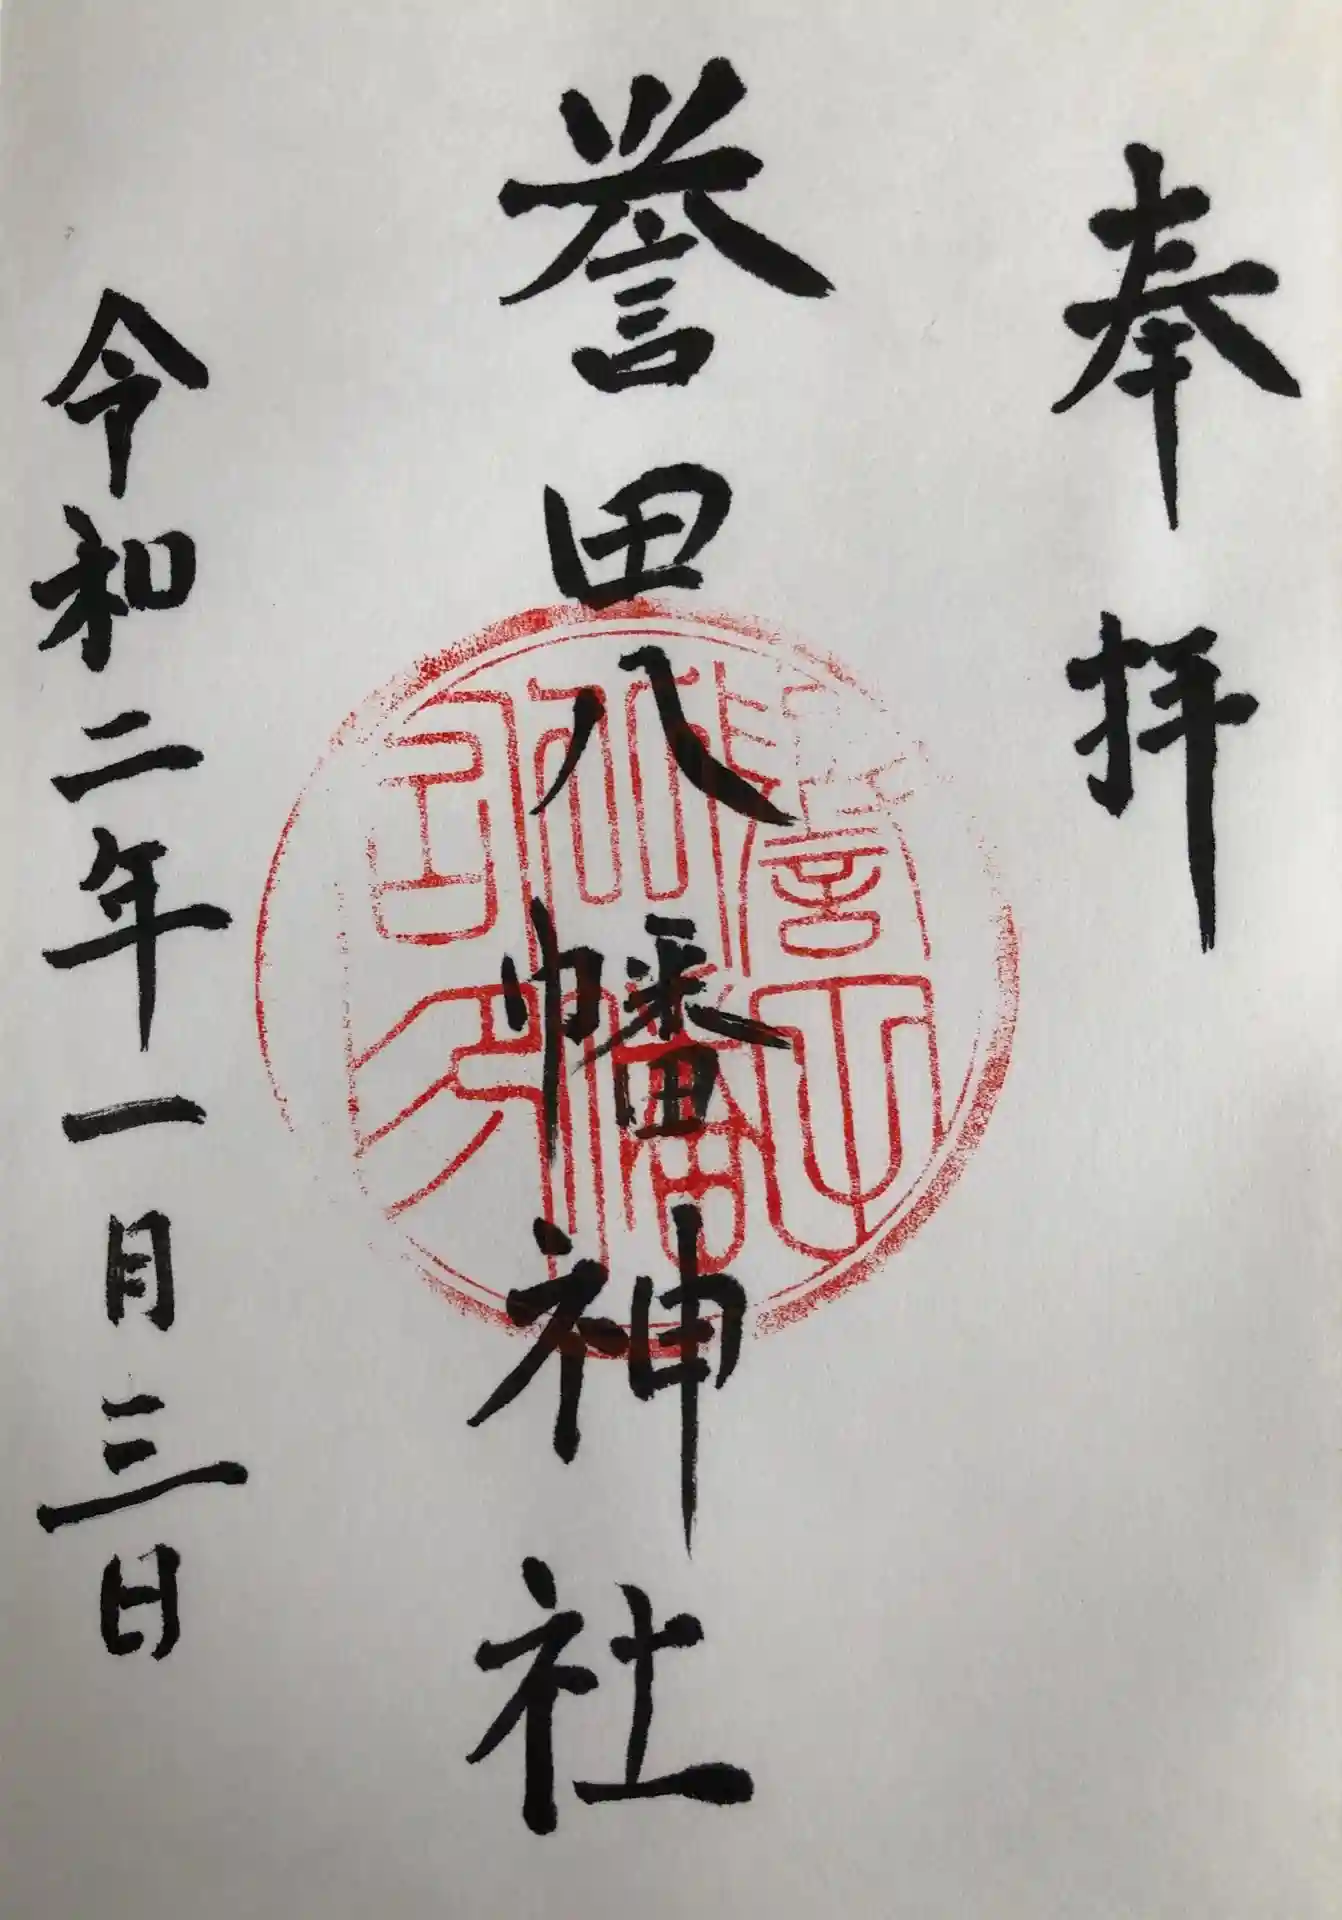 奉拝
誉田八幡神社
令和二年一月三日